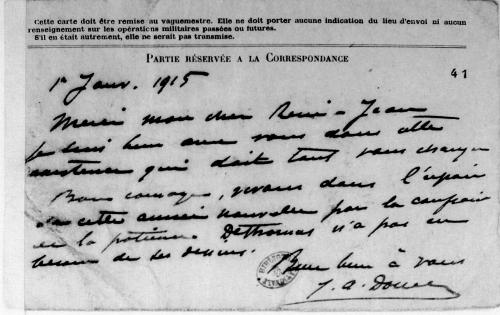 Cette carte doit être remise au vaguemestre. Elle ne doit porter aucune indication du lieu d'envoi ni aucun
renseignement sur les opérations militaires passées ou futures.
S'il en était autrement, elle ne serait pas transmise.
PARTIE RÉSERVÉE A LA CORRESPONDANCE
41
1er Janv. 1915
Merci mon cher Remi-Jean
Je suis bien avec vous dans cette
existence qui doit tant vous changer
Bon courage, vivons dans l'espoir
cette année nouvelle par la
la patience Dethomas n'a pas eu
besoin de ses dessins.
Bien à vous
J. A.